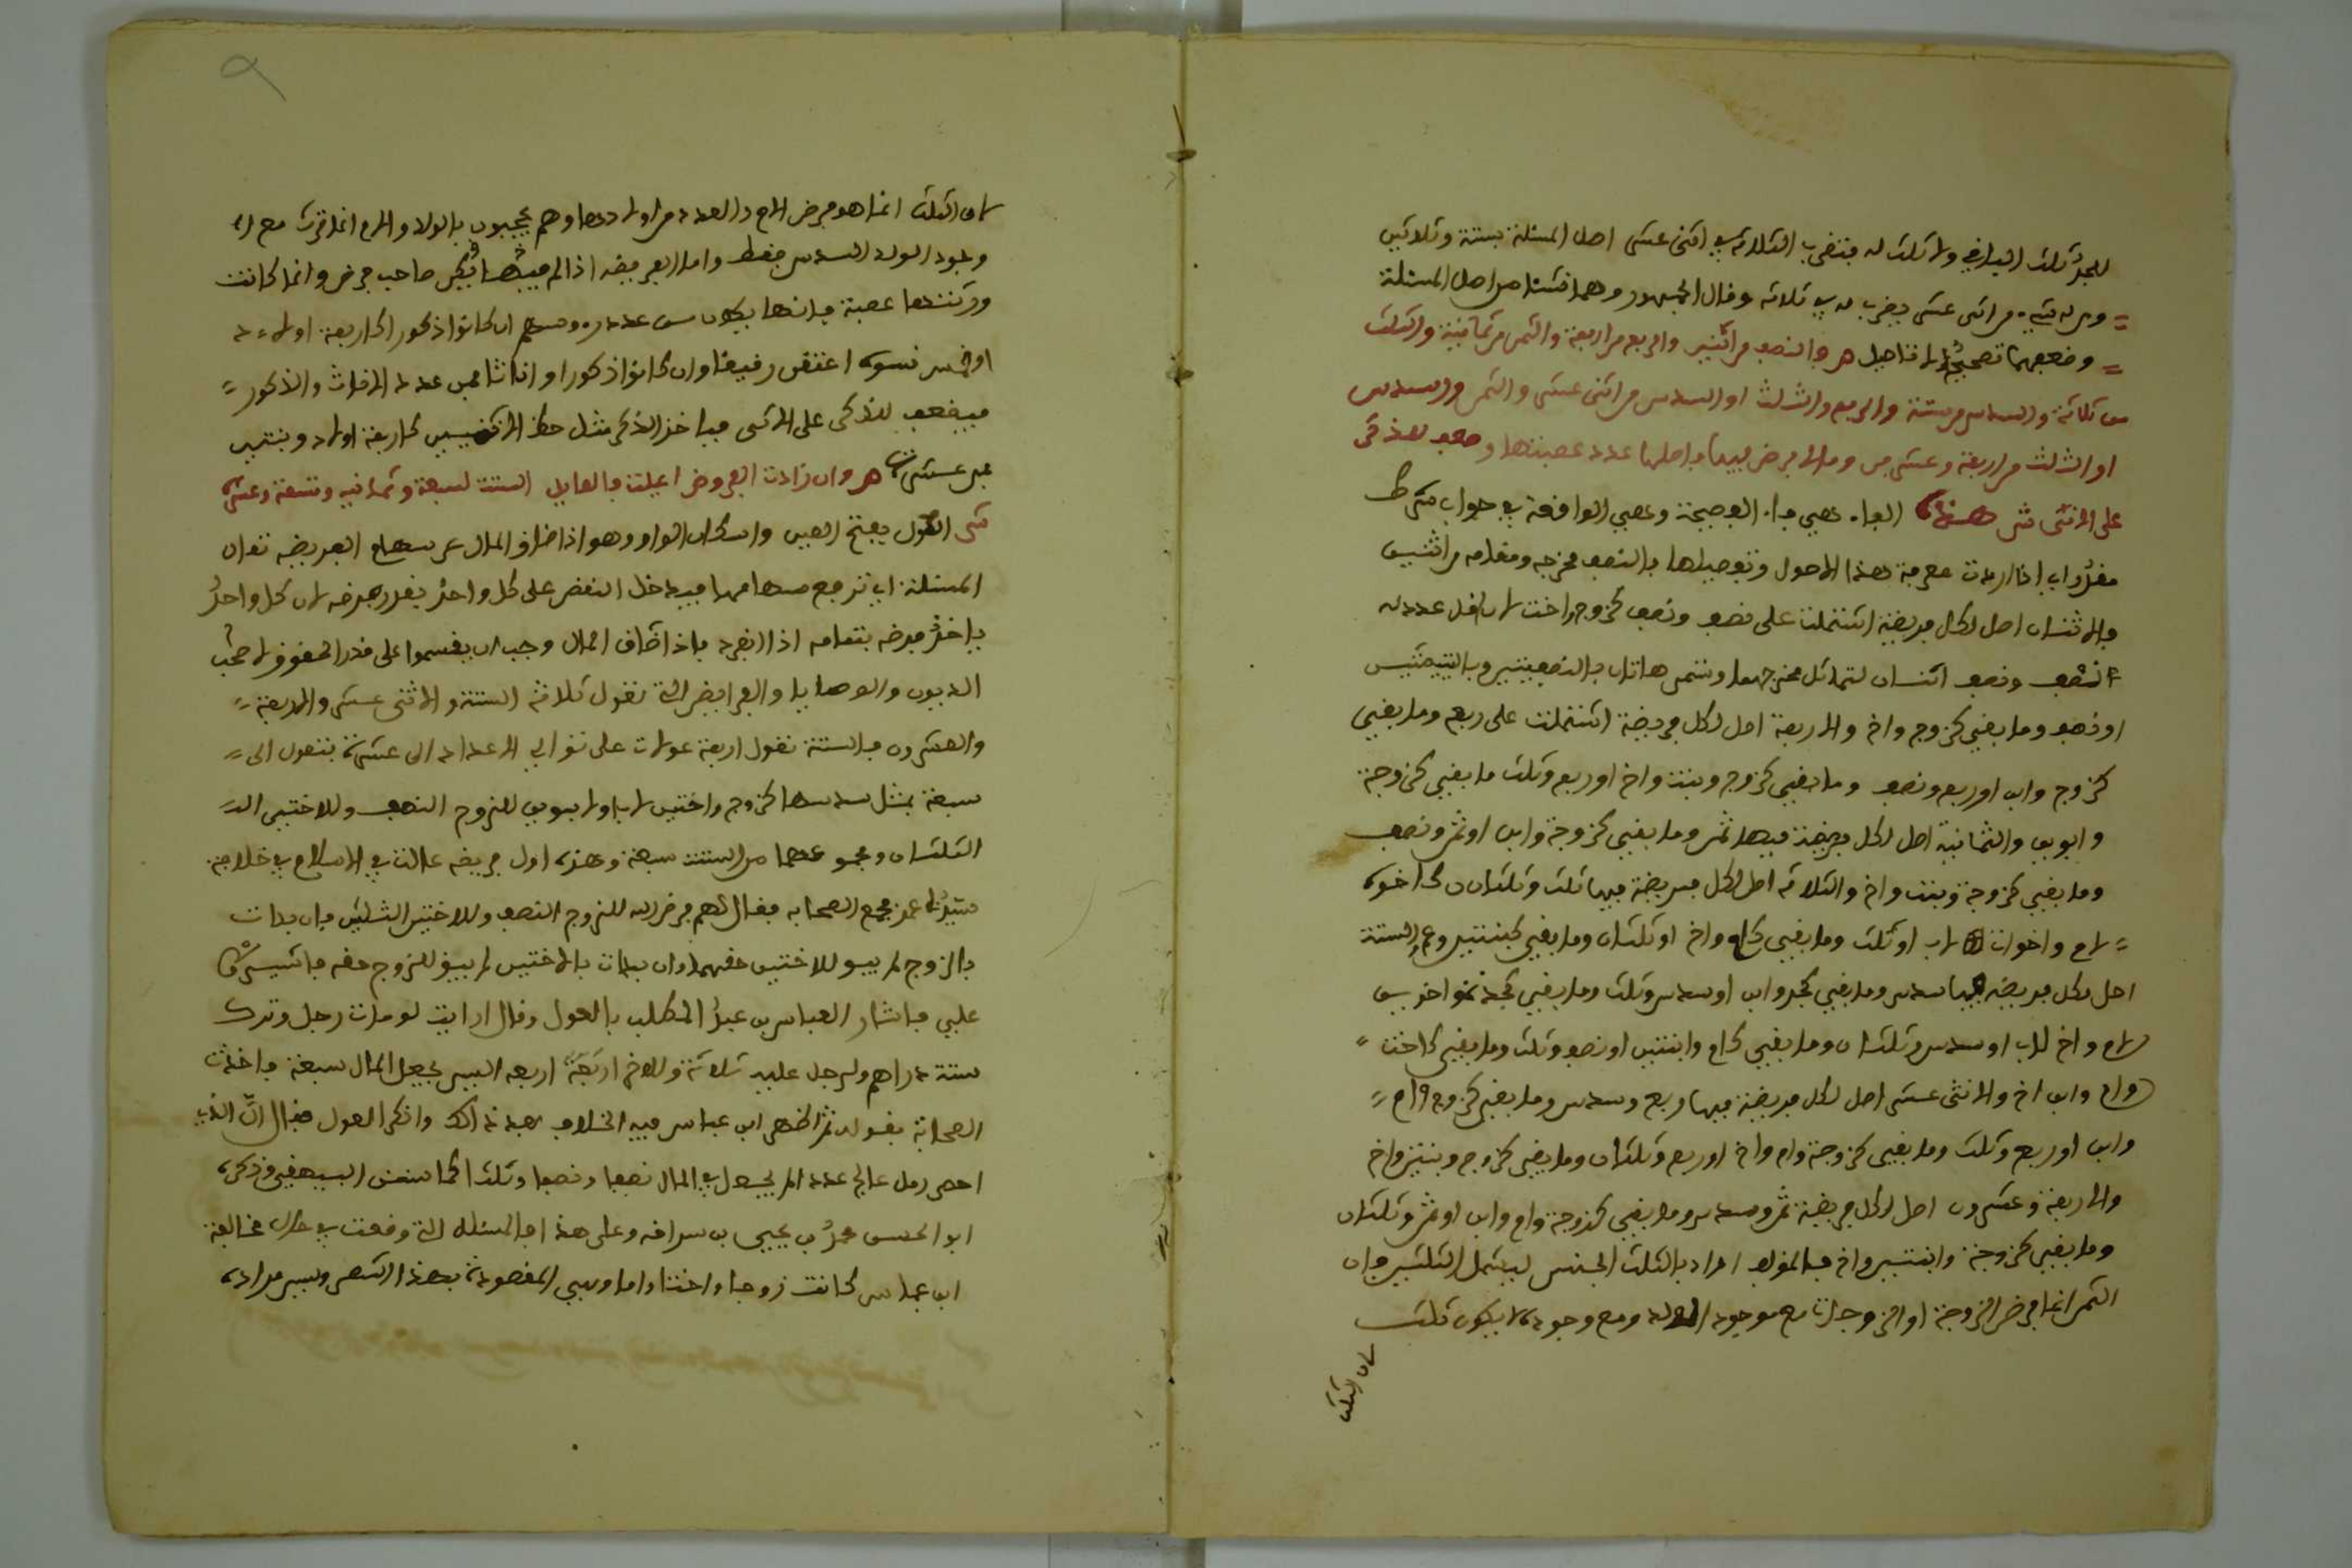 للجد ثلث الباقي ولا ثلث له فتضرب الثلاثة في اثنى عشر اصل المسئلة بستة وثلاثين
ومن له شيء من اثنى عشر يضرب له في ثلاثة وقال الجمهور وهما نشئا من اصل المسئلة
وضعفهما تصحيح لا تاصيل ص والنصف من اثنين والربع من اربعة والثمن من ثمانية والثلث
من ثلاثة والسدس من ستة والربع والثلث او السدس من اثنى عشر والثمن والسدس
او الثلث من اربعة وعشرين وما لا فرض فيها فاصلها عدد عصبتها وضعف للذكر
على الانثى ش الفاء هي فاء الفصيحة وهي الواقعة في جواب شرط
مقدر اي اذا اردت معرفة هذه الاصول وتفصيلها فالنصف مخرجه ومقامه من اثنين
والاثنان اصل لكل فريضة اشتملت على نصف ونصف كزوج واخت لان اقل عدد له
نصف ونصف اثنان لتماثل مخرجهما وتسمى هاتان بالنصفيتين وباليتيمتين
او نصف وما بقي كزوج واخ والاربعة اصل لكل فريضة اشتملت على ربع وما بقي
كزوج وابن او ربع ونصف وما بقي كزوج وبنت واخ او ربع وثلث ما بقي كزوجة
وابوين والثمانية اصل لكل فريضة فيها ثمن وما بقي كزوجة وابن او ثمن ونصف
وما بقي كزوجة وبنت واخ والثلاثة اصل لكل فريضة فيها ثلث وثلثان كاخوة
لام واخوات لاب او ثلث وما بقي كام واخ او ثلثان وما بقي كبنتين وعم والستة
اصل لكل فريضة فيها سدس وما بقي كجد وابن او سدس وثلث وما بقي كجدة واخوين
لام واخ لاب او سدس وثلثان وما بقي كام وابنتين او نصف وثلث وما بقي كاخت
وام وابن اخ والاثنى عشر اصل لكل فريضة فيها ربع وسدس وما بقي كزوج وام
وابن او ربع وثلث وما بقي كزوجة وام واخ او ربع وثلثان وما بقي كزوج وبنتين واخ
والاربعة وعشرون اصل لكل فريضة ثمن وسدس وما بقي كزوجة وام وابن او ثمن وثلثان
وما بقي كزوجة وابنتين واخ فالمؤلف اراد بالثلث الجنس ليشمل الثلثين فان
الثمن انما فرض الزوجة او الزوجات مع وجود الولد ومع وجوده لا يكون ثلث
لان الثلث
لان الثلث انما هو فرض الام والعدد من اولادها وهم يحجبون بالولد والام انما ترث مع
وجود الولد السدس فقط واما الفريضة اذا لم فيها صاحب فرض وانما كانت
ورثتها عصبة فانها يكون من عدد رءوسهم ان كانوا ذكورا كاربعة اولاد
او خمس نسوة اعتقن رقيقا وان كانوا ذكورا واناثا فمن عدد الاناث والذكور
فيضعف للذكر على الانثى فياخذ الذكر مثل حظ الانثيين كاربعة اولاد وبنتين
فمن عشرة ص وان زادت الفروض اعيلت فالعايل الستة لسبعة وثمانية وتسعة وعشرة
ش العول بفتح العين واسكان الواو وهو اذا ضاق المال عن سهام الفريضة تعال
المسئلة اي ترفع سهامها فيدخل النقص على كل واحد بقدر فرضه لان كل واحد
ياخذ فرضه بتمامه اذا انفرد فاذا ضاق المال وجب ان يقسموا على قدر الحقوق لاصحاب
الديون والوصايا والفرايض التي تعول ثلاثة الستة والاثنى عشر والاربعة
والعشرون فالستة تعول اربعة عولات على توالي الاعداد الى عشرة فتعول الى
سبعة بمثل سدسها كزوج واختين لاب او لابوين للزوج النصف وللاختين
الثلثان ومجموعهما من الستة سبعة وهذه اول فريضة عالت في الاسلام في خلافة
سيدنا عمر فجمع الصحابة فقال لهم فرض الله للزوج النصف وللاختين الثلثين فان بدات
بالزوج لم يبق للاختين حقهما وان بدات بالاختين لم يبق للزوج حقه فاشيروا
علي فاشار العباس بن عبد المطلب بالعول وقال ارايت لو مات رجل وترك
ستة دراهم ولرجل عليه ثلاثة وللاخر اربعة اربعة اليس يجعل المال سبعة فاخذت
الصحابة بقوله ثم اظهر ابن عباس فيه الخلاف بعد ذالك وانكر العول فقال ان الذي
احصى رمل عالج عددا لم يجعل في المال نصفا ونصفا وثلثا كما سنن البيهقي وذكره
ابو الحسن محمد بن يحيى بن سراقة وعلى هذا فالمسئلة التي وقعت في خلاف مخالفة
ابن عباس كانت زوجا واختا واما وهي المقصودة بهذا الشعر وليس مراده